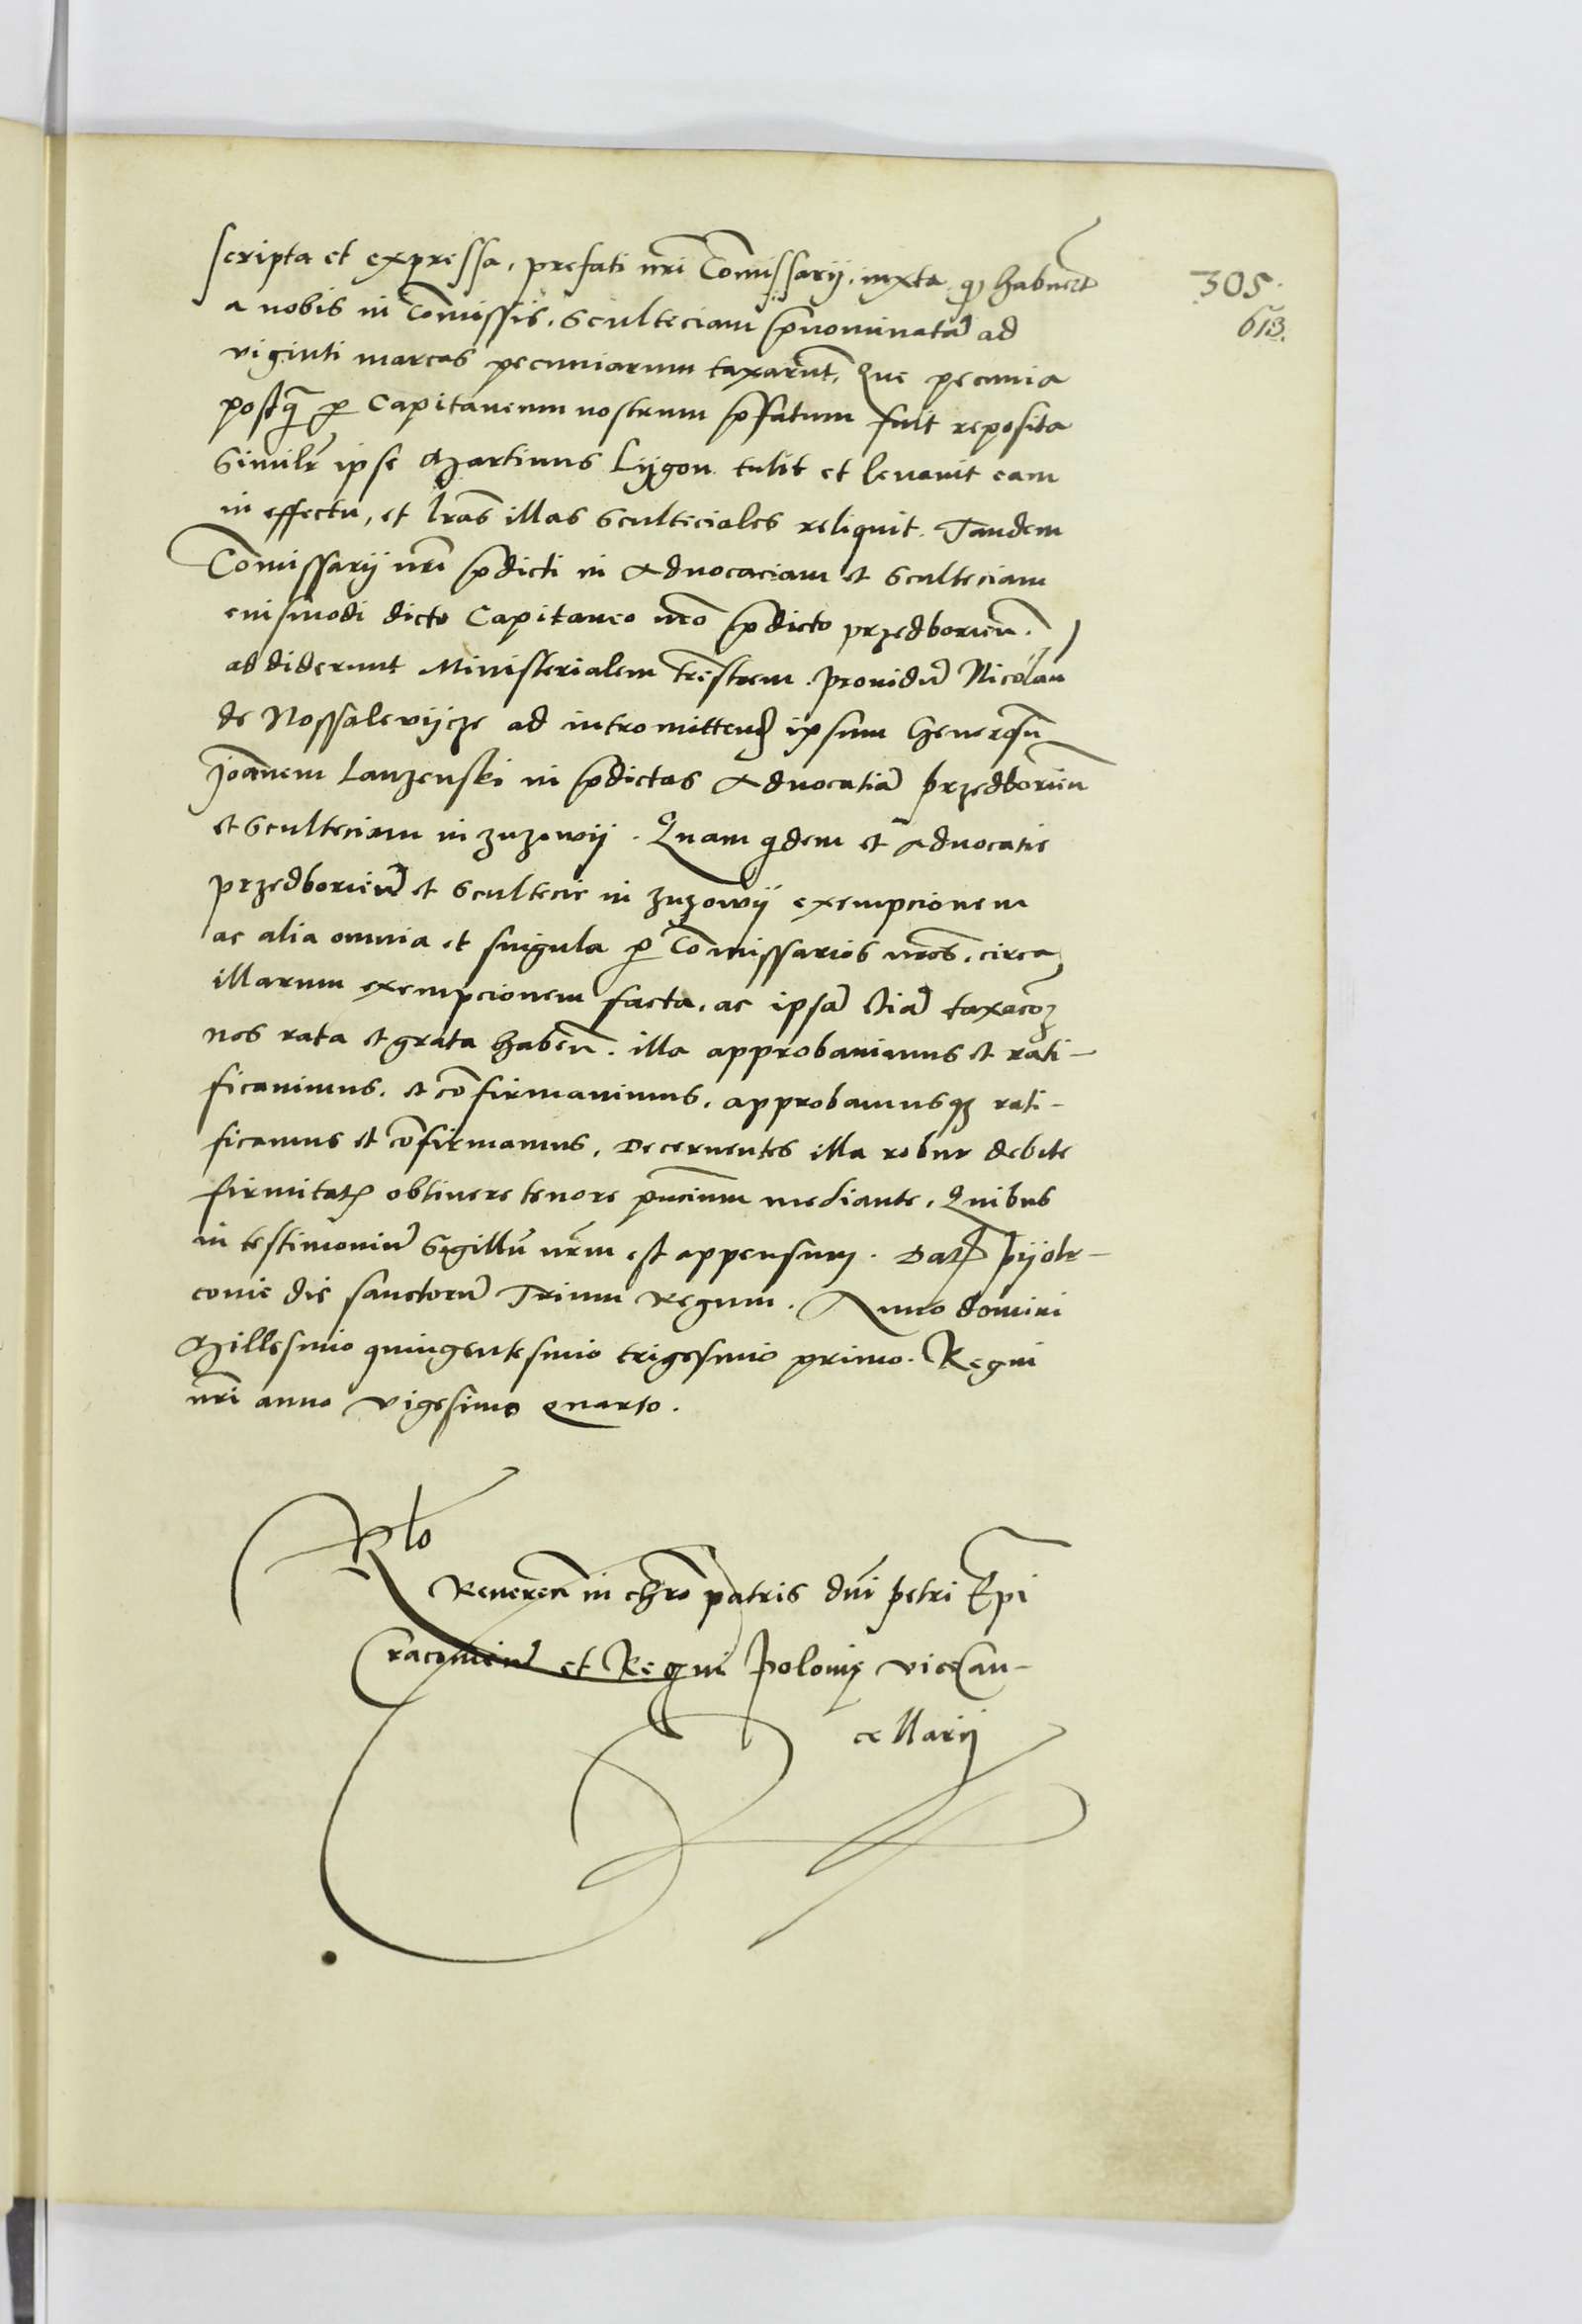 scripta et expressa, prefati nr̃i Com̃issarij, iuxta q̃ habuer̃t
305.
a nobis in Com̃issis, Sculteciam p̃nominatã ad
613.
viginti marcas pecuniarum taxarũt, Que pecunia
postq̃ ꝑ Capitaneum nostrum p̃fatum fuit reposita
Similr̃ ipse Martinus Lygon tulit et levavit eam
in effectu, et lr̃as illas Sculteciales reliquit. Tandem
Com̃issarij nr̃i p̃dicti in Advocaciam et Sculteciam
euismodi dicto Capitaneo nr̃o p̃dicto przedborien̄.
addiderunt Ministerialem trẽstrem. providũ Nicolau
de Nossalevijcze ad intromittend̃ ipsum Generosũ
Joañem Lanzenski in p̃dictas Advocatiã przedborien̄
et Sculteciam in zuzowij. Quam q̃dem et Advocatie
przedborien̄ et Scultecie in zuzowij exempcionem
ac alia omnia et singula ꝑ Com̃issarios nr̃os, circa
illarum exempcionem facta, ac ipsã etiã taxacõꝫ
nos rata et grata haben̄. illa approbavimus et rati-
ficavimus, et cõfirmavimus, approbamusqꝫ rati-
ficamus et cõfirmamus, Decernentes illa robur debite
firmitatꝭ obtinere tenore p̃ncium mediante, Quibus
in testimoniũ Sigillũ nr̃m est appensum. Datꝭ pijotr-
covie die sanctorũ Trium Regum. Anno domini
Millesimo quingentesimo trigesimo primo. Regni
nr̃i anno vigesimo quarto.
Rl̃o
Reveren̄ in chr̃o patris dñi petri Ep̃i
Cracovien̄ et Regni Polonie viceCan-
cellarij